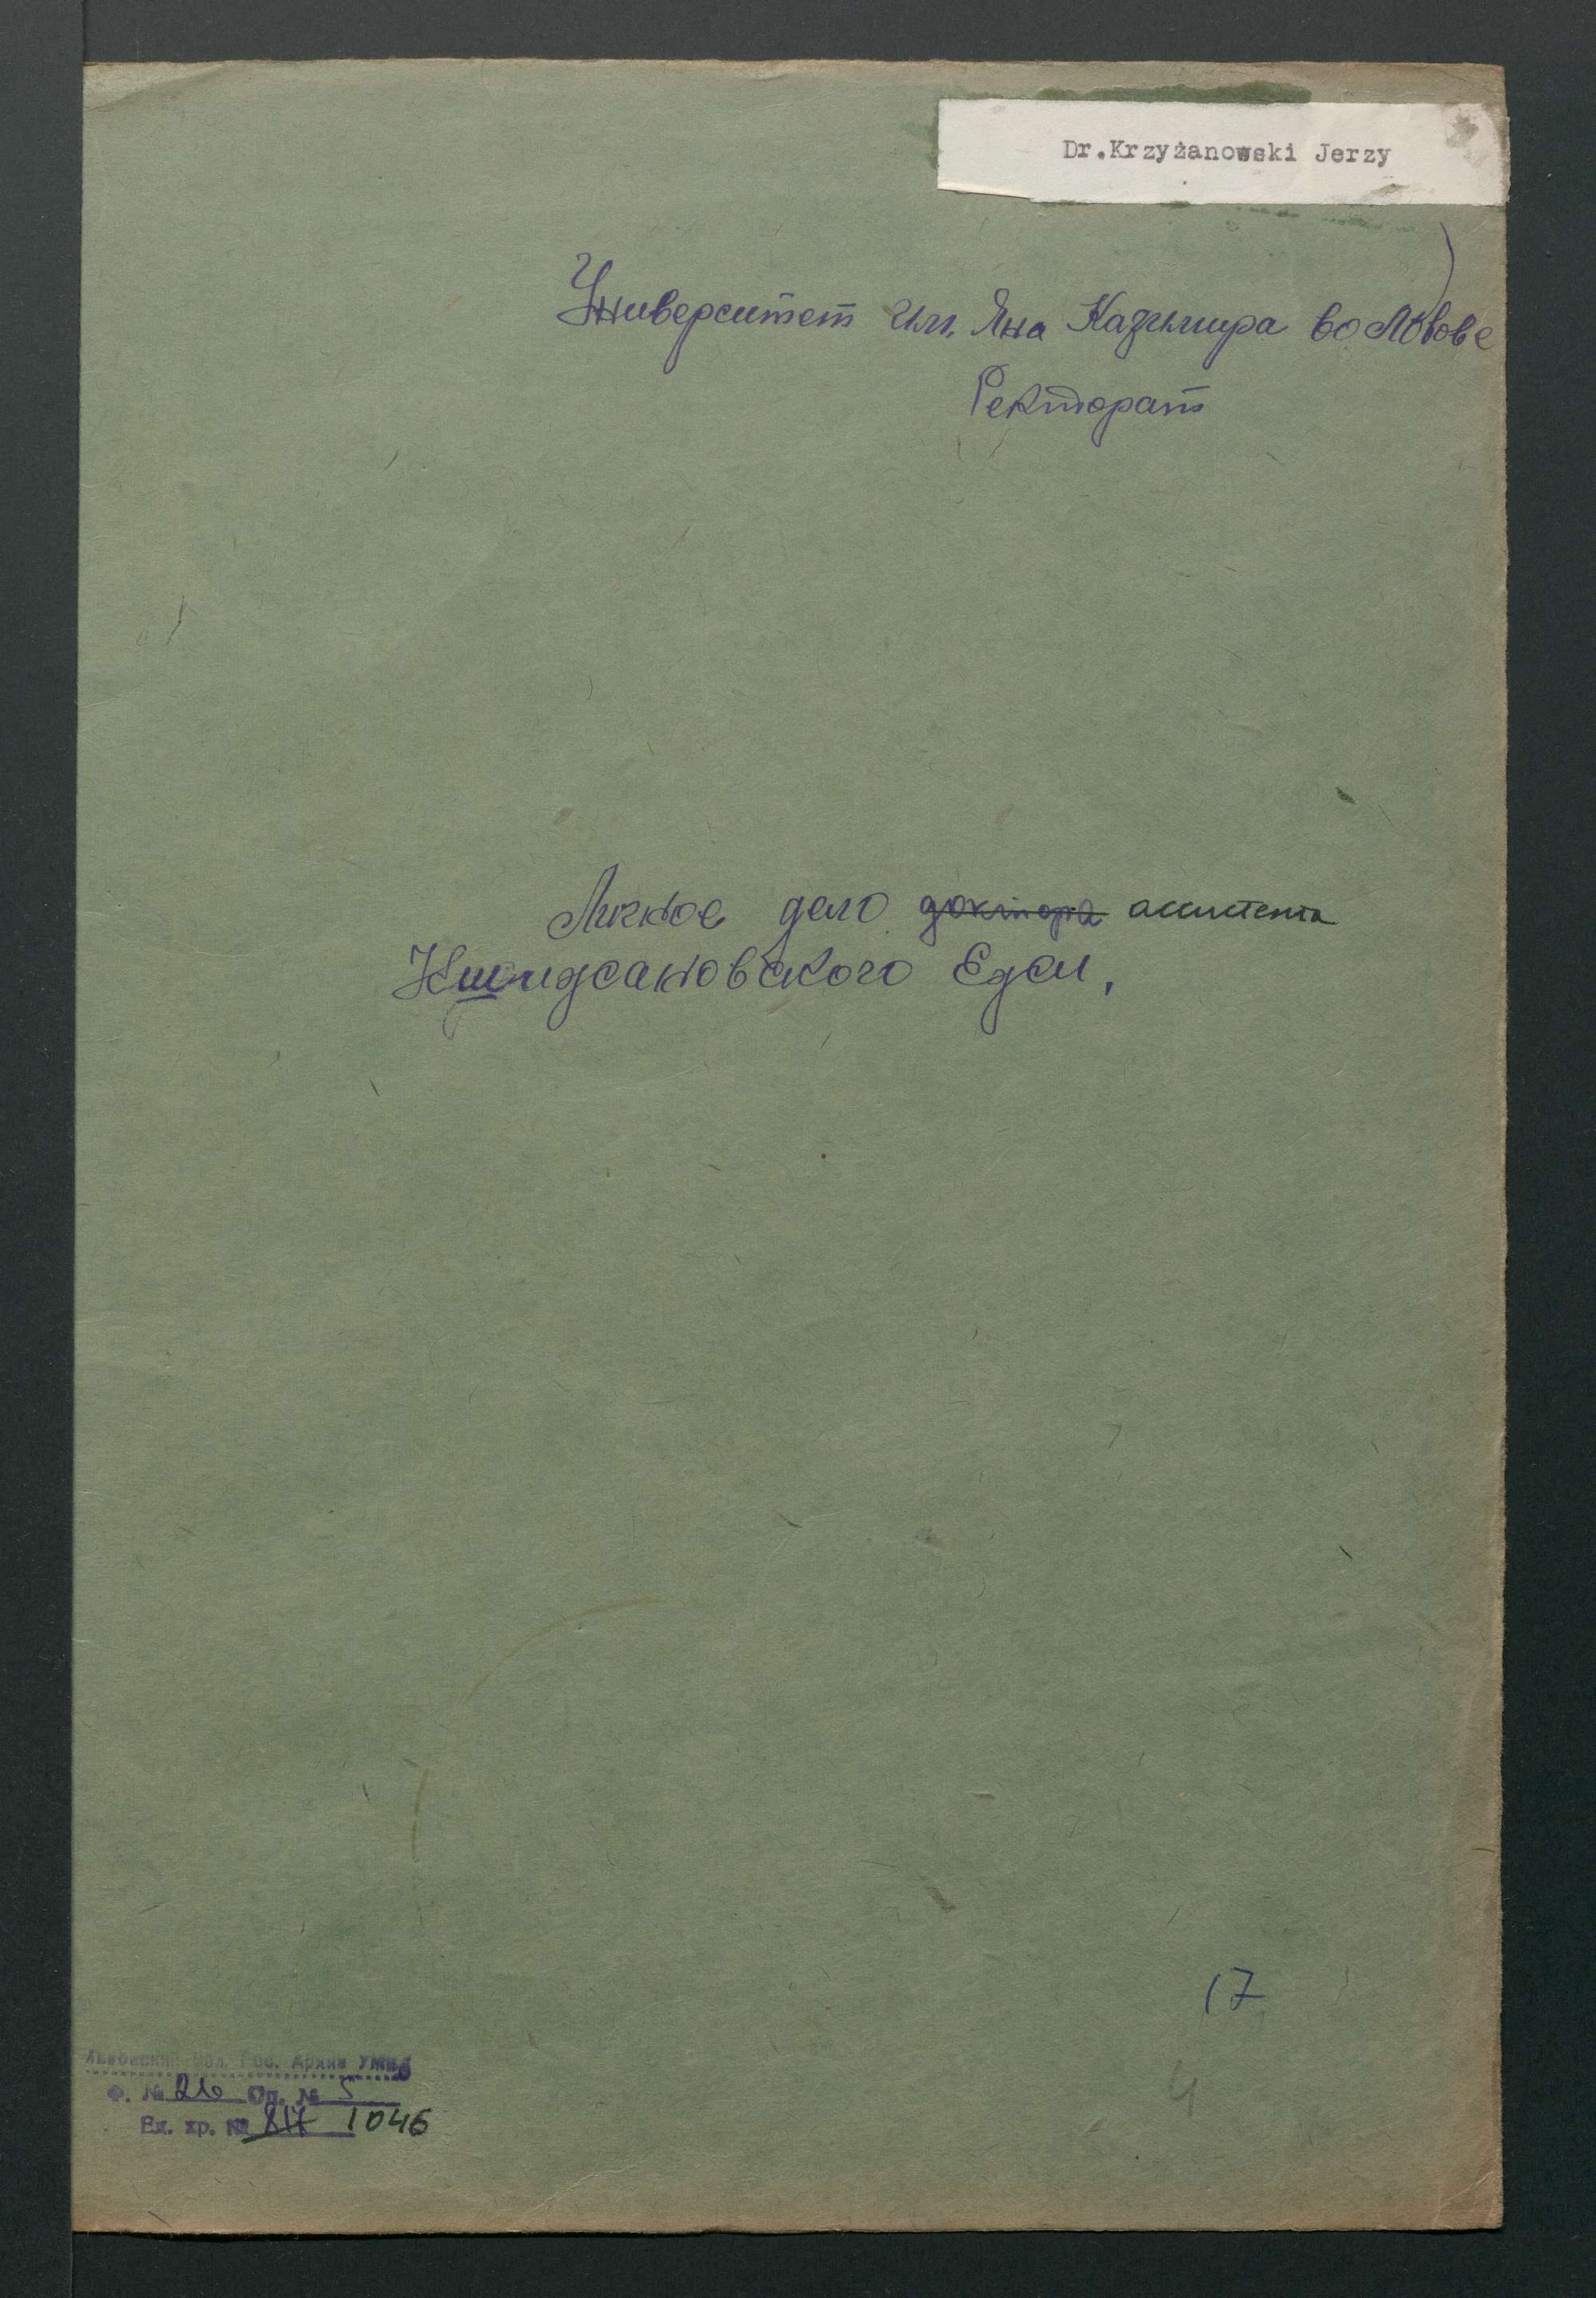 Dr.Krzyżanowski Jerzy
Университет им. Яна Казимира во Львове
Ректорат
Личное дело доктора ассистента
Кшиджановского Ежи,
17
4
Львовский Обл. Гос. Архив УМВД
Ф. № 26 Оп. № 5
Ед. хр. № 817 1046